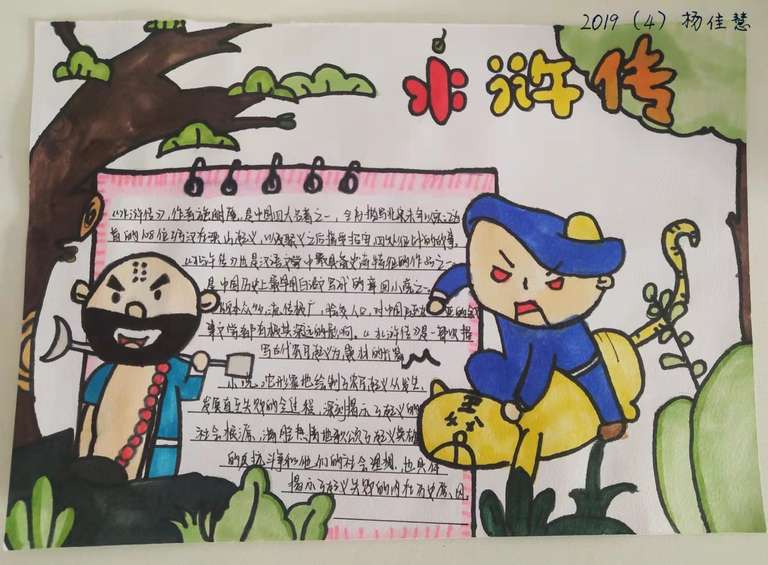 2019 (4) 杨佳慧
水浒传
《水浒传》，作者施耐庵，是中国四大名著之一，全书描写北宋末年以宋江为
首的108位好汉在梁山起义，以及聚义之后接受招安、四处征战的故事。
《水浒传》也是汉语文学中最具备史诗特征的作品之一
是中国历史上最早用白话文写成的章回小说之一
版本众多，流传极广，脍炙人口，对中国乃至 亚的叙
事文学都有极其深远的影响。《水浒传》是一部以描
写古代农民起义为题材的长篇
小说，它形象地绘制了农民起义从发生、
发展直至失败的全过程，深刻揭示了起义的
社会根源，满腔热情地歌颂了起义英雄
的反抗斗争和他们的社会理想，也具体
揭示了起义失败的内在历史原因